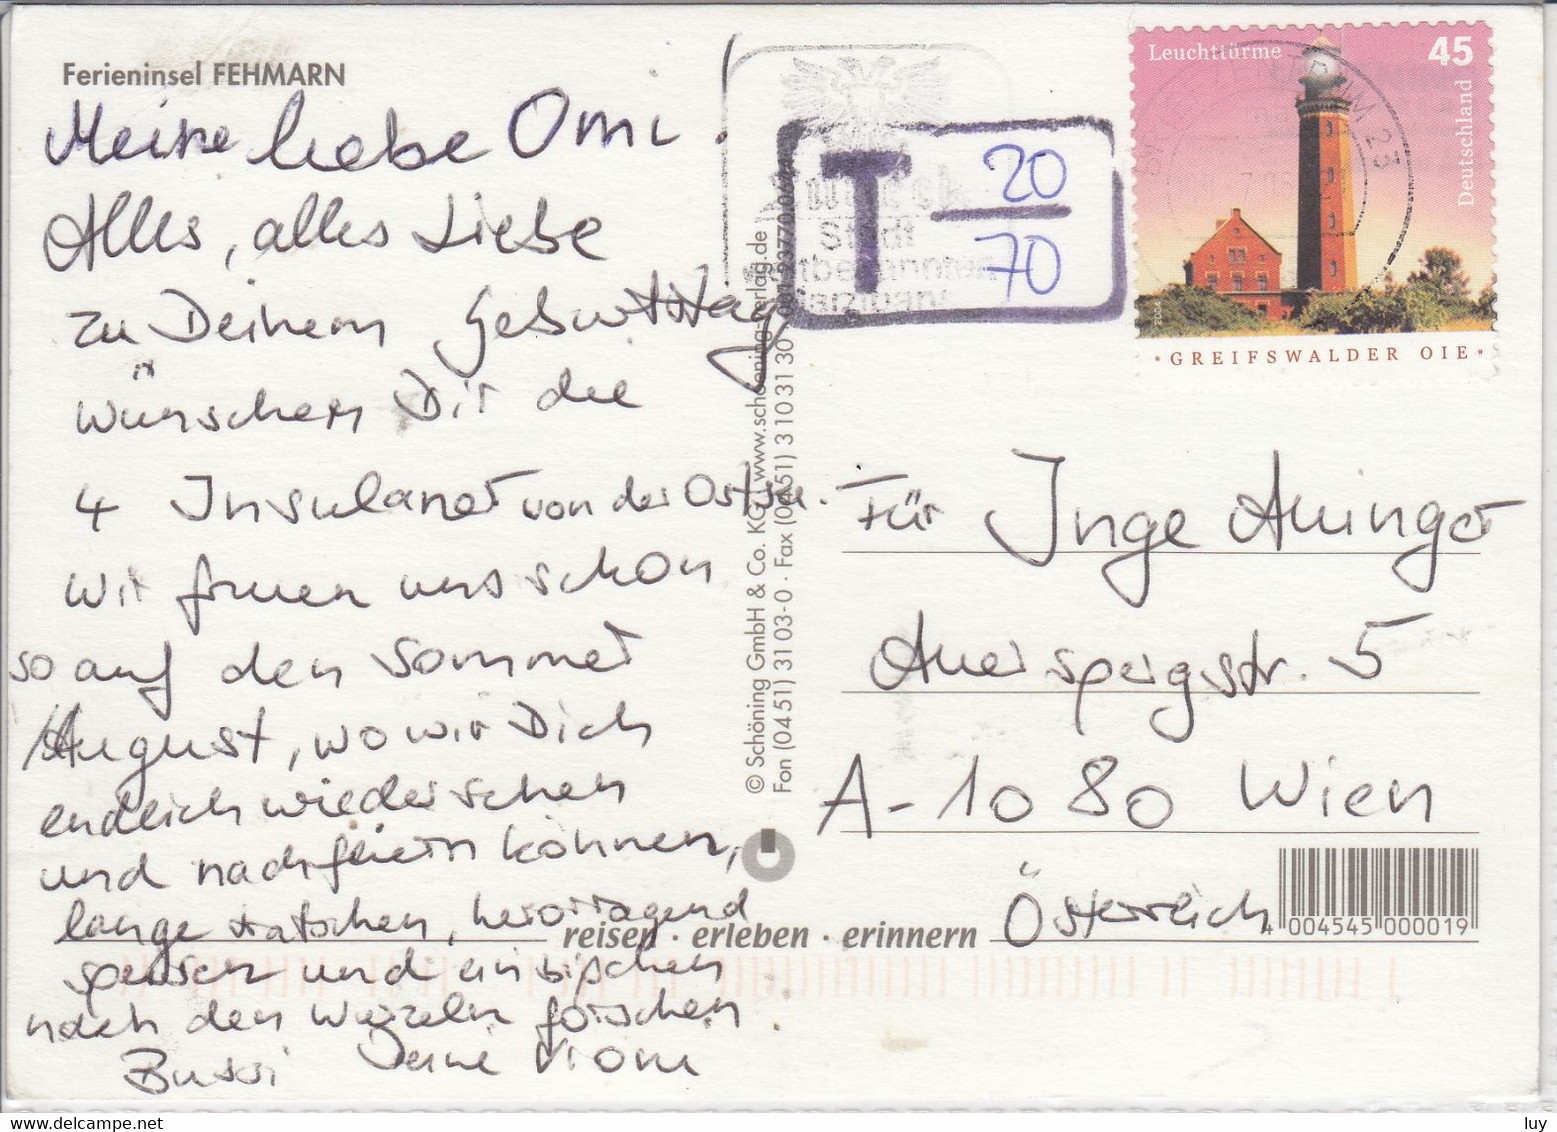 Ferieninsel FEHMARN
Meine liebe Omi!
Alles, alles Liebe
zu Deinem Geburtstag
wünschen Dir die
4 Insulaner von der Ostsee.
Wir freuen uns schon
so auf den Sommer
August, wo wir Dich
endlich wiedersehen
und nachfeiern können,
lange tratschen, hervorragend
speisen und ein bißchen
nach den Wurzeln forschen.
Bussi Deine
© Schöning GmbH & Co. KG · www.schoening-verlag.de
Fon (04 51) 31 03-0 · Fax (04 51) 3 10 31 30
reisen · erleben · erinnern
T 20
70
Stadt
Leuchttürme 45
Deutschland
23
• GREIFSWALDER OIE •
Für Inge Auinger
Auerspergstr. 5
A-1080 Wien
Österreich
4 004545 000019
www.delcampe.net
luy